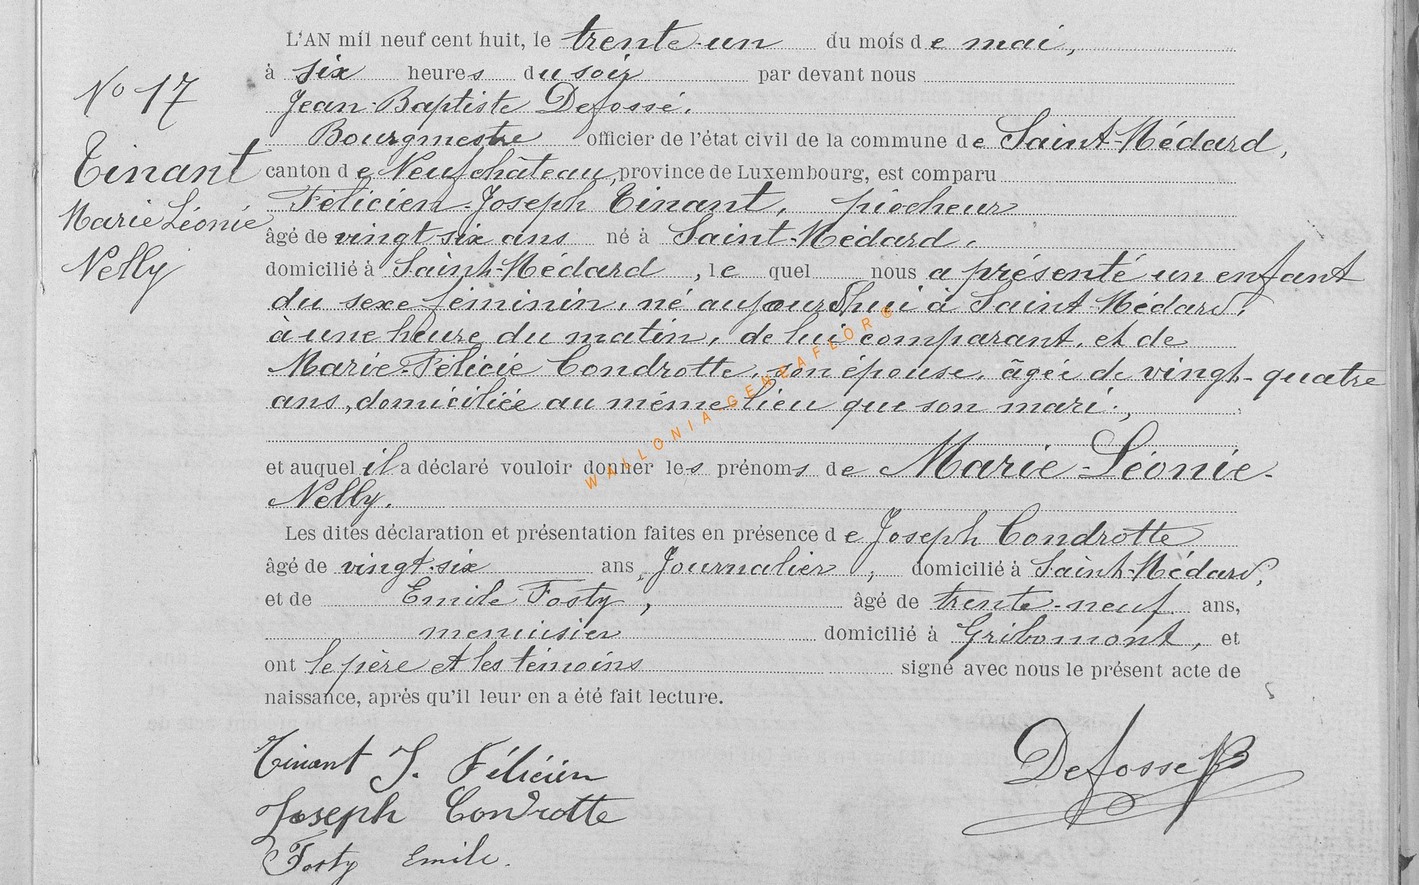 L'AN mil neuf cent huit, le trente-un du mois de mai,
à six heures du soir par devant nous
Jean-Baptiste Defossé.
Bourgmestre officier de l'état civil de la commune de Saint-Médard,
canton de Neufchâteau, province de Luxembourg, est comparu
Félicien-Joseph Tinant, piocheur
âgé de vingt-six ans né à Saint-Médard,
domicilié à Saint-Médard, le quel nous a présenté un enfant
du sexe féminin, né aujourd'hui à Saint Médard,
à une heure du matin, de lui comparant, et de
Marie-Félicie Condrotte, son épouse, âgée de vingt-quatre
ans, domiciliée au même lieu que son mari.,
et auquel il a déclaré vouloir donner les prénoms de Marie-Léonie-
Nelly.
Les dites déclaration et présentation faites en présence de Joseph Condrotte
âgé de vingt-six ans, Journalier, domicilié à Saint-Médard,
et de Emile Fosty, âgé de trente-neuf ans,
menuisier domicilié à Gribomont, et
ont le père et les témoins signé avec nous le présent acte de
naissance, après qu'il leur en a été fait lecture.
No 17
Tinant
Marie Léonie
Nelly
Tinant J. Félicien
Joseph Condrotte
Fosty Emile.
Defossé JB
WALLONIA GENEAFLOR®